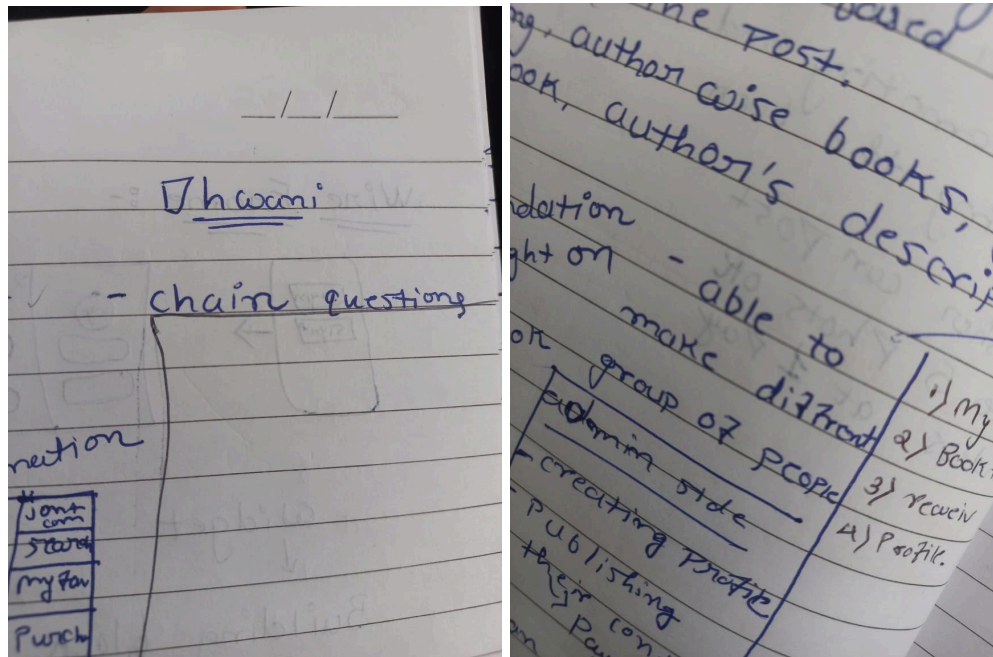 __/__/____
Dhwani
- chain questions
nection
search
my fav
Purch
Based
the Post.
author wise books,
ook, author's descrip
dation
ght on - able to
make different
group of people
admin side
- creating Profile
- Publishing
their con
1) My
2) Book
3) receiv
4) Profile.